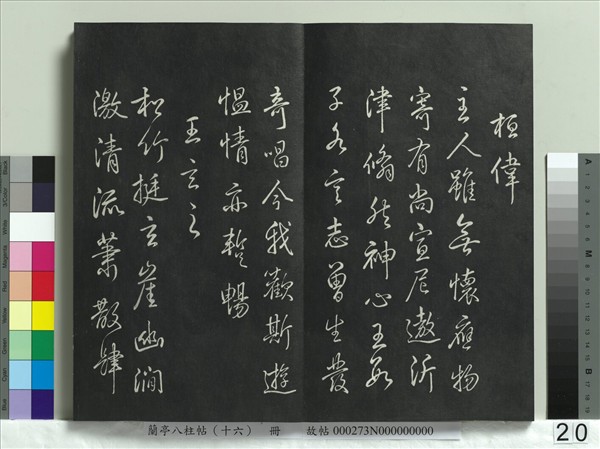 桓偉
主人雖無懷應物
寄有尚宣尼遨沂
津翛然神心王數
子各言志曾生發
奇唱今我歡斯遊
慍情亦蹔暢
王玄之
松竹挺玄崖幽澗
激清流蕭散肆
蘭亭八柱帖（十六） 冊 故帖000273N000000000
20